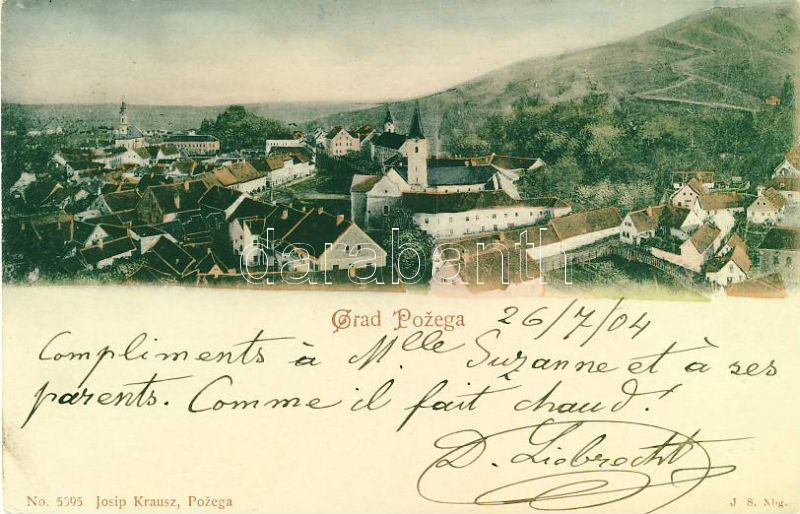 darabanth
Grad Požega 26/7/04
Compliments à Mlle Suzanne et à ses
parents. Comme il fait chaud!
D. Liebrecht
No. 5595 Josip Krausz, Požega
J. S. Nbg.